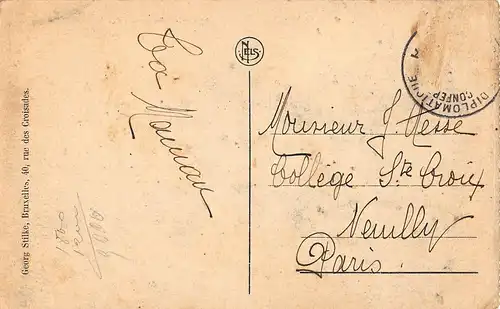 Georg Stilke, Bruxelles, 40, rue des Croisades.
Ta Maman
NELS
DIPLOMATIQUE
CONFER
Monsieur J. Hesse
Collège Ste Croix
Neuilly
Paris.